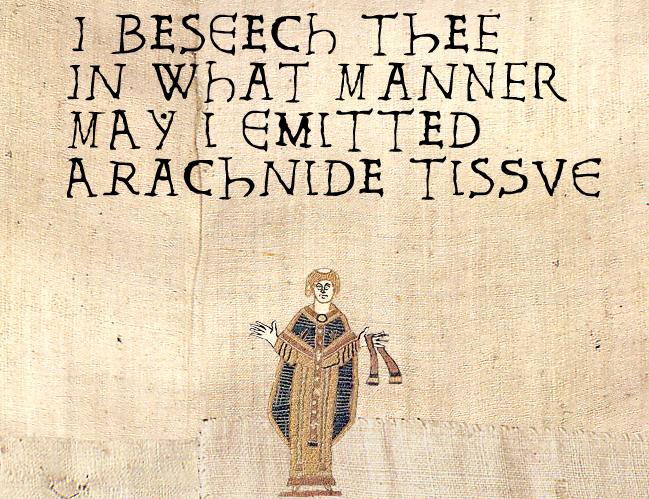 I BESEECh ThEE
IN WhAT MANNER
MAY I EMITTED
ARAChNIDE TISSVE